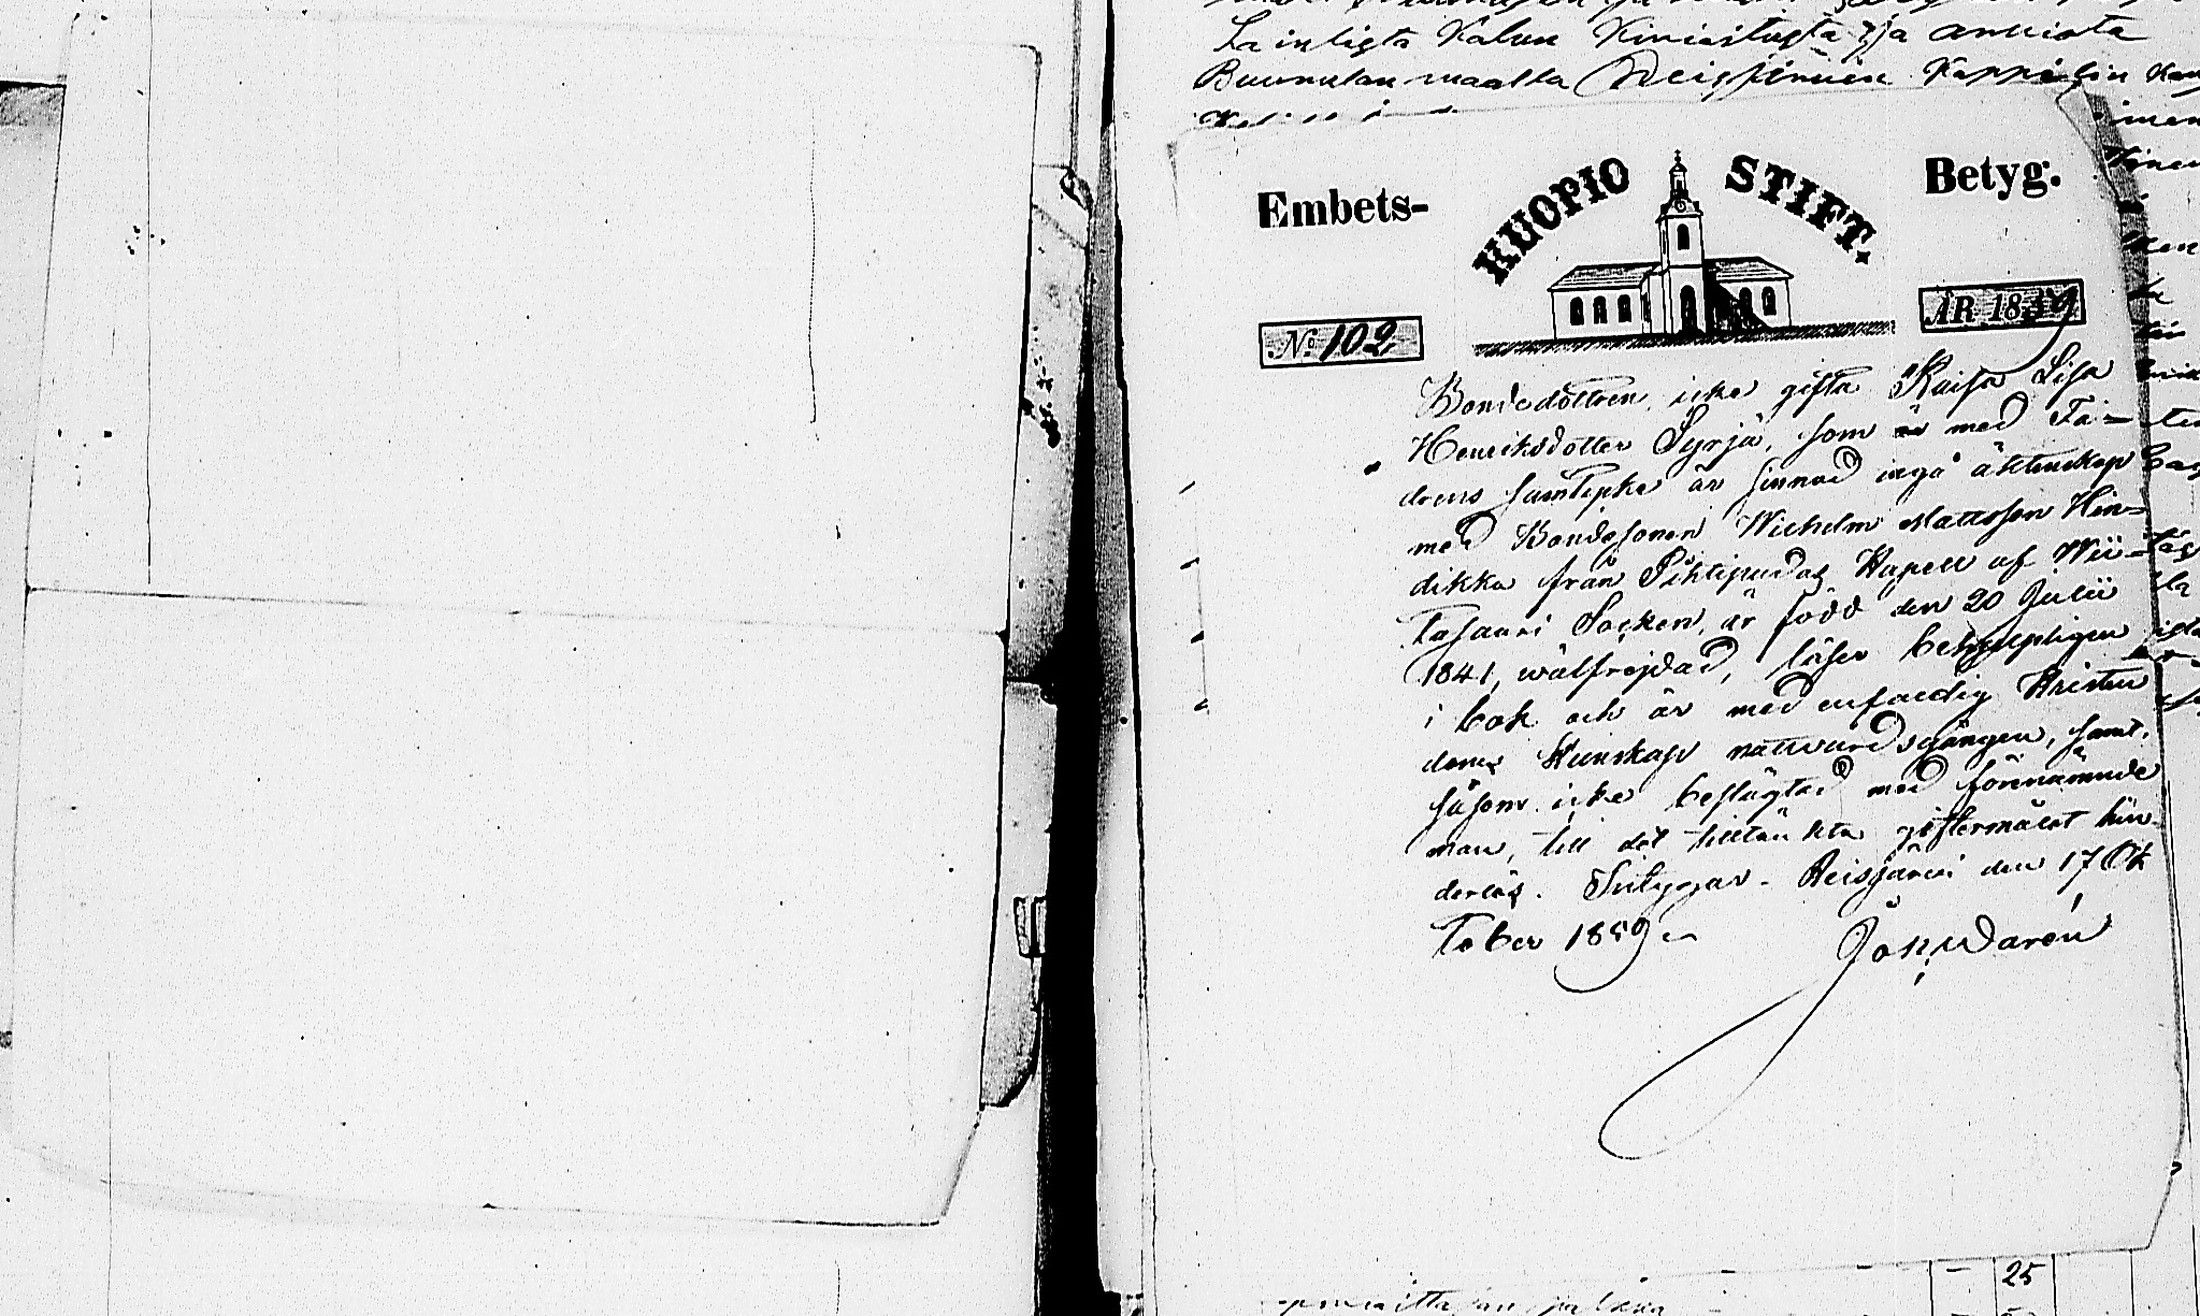 La inligta Kalun Kiniastugta ja anuista
Buunulan maalla Reisjärwen Kappelin
Embets-
KUOPIO STIFT.
Betyg.
No 102
ÅR 1859
Bondedottren, icke gifta Kaisa Lisa
Henriksdotter Syrjä, som med Fä-
drens samtycke är sinnad ingå äktenskap
med Bondesonen Wilhelm Mattsson Hin-
dikka från Pihtipudas Kapell af Wii-
tasaari Socken, är född den 20 Julii
1841, wälfrejdad, läser behjelpligen
i bok och är med enfaldig Kristen
doms Kunskap nattvardsgången, samt,
såsom icke beslägtad med förenämnde
man, till det tilltänkta giftermålet hin-
derlös. Intygar. Reisjärvi den 17 Ok
tober 1859
Joh. Warén
25